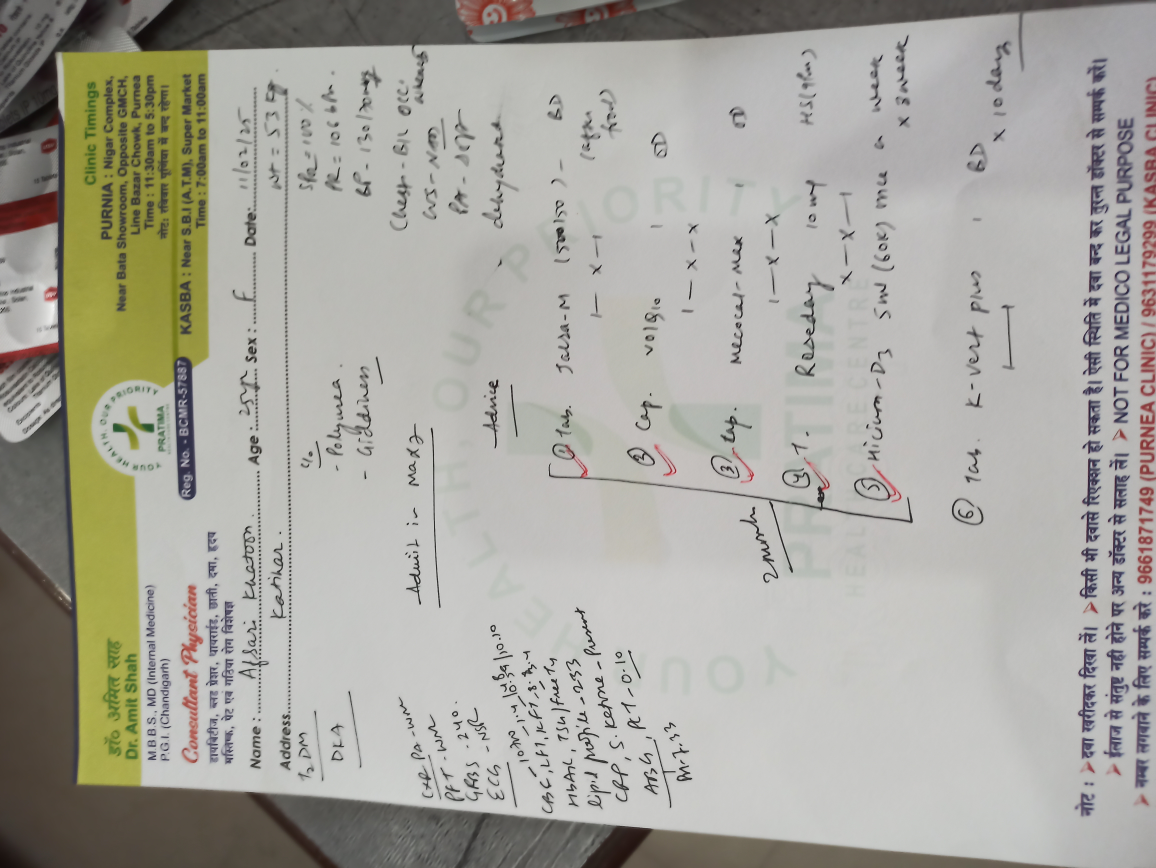 डॉ० अमित साह
Dr. Amit Shah
M.B.B.S., MD (Internal Medicine)
P.G.I. (Chandigarh)
Consultant Physician
डायबिटीज, ब्लड प्रेशर, थायराईड, छाती, दमा, हृदय
मस्तिष्क, पेट एवं गठिया रोग विशेषज्ञ
YOUR HEALTH OUR PRIORITY
PRATIMA
Reg. No. - BCMR-57887
Clinic Timings
PURNIA : Nigar Complex,
Near Bata Showroom, Opposite GMCH,
Line Bazar Chowk, Purnea
Time : 11:30am to 5:30pm
नोट: रविवार पूर्णिया में बन्द रहेगा।
KASBA : Near S.B.I (A.T.M), Super Market
Time : 7:00am to 11:00am
Name : Afsari Khatoon Age : 25yr Sex : F Date: 11/02/25
Address Katihar. WT = 53 kg
T2DM
DKA
c/o
- Polyurea.
- Giddiness
SPO2 = 100%
PR = 106 bpm
BP - 130/70mmHg
Chest - B/L occ.
CVS - NAD
PA - soft
dehydrated
Admit in Max 7
CXR PA - WNL
PFT - WNL
GRBS - 240.
ECG - NSR
CBC, LFT, KFT
HbA1C, TSH/FreeT4
lipid profile - 233
CRP, S. Ketone - Present
ABG, PCT - 0.10
Advice
① Tab. Jalsa-M (500/50) - BD
1 - x - 1 (after food)
② Cap. Volg 10 1 OD
1 - x - x
③ Cap. Mecocal-Max 1 OD
1 - x - x
④ T. Roseday 10mg HS (9pm)
x - x - 1
⑤ Hicium-D3 5ml (60K) once a week
x 8 week
2 month
⑥ Tab. K-vert plus 1 BD
x 10 days
YOUR HEALTH, OUR PRIORITY
PRATIMA
HEALTHCARE CENTRE
नोट : ➤ दवा खरीदकर दिखा लें। ➤ किसी भी दवासे रिएक्शन हो सकता है। ऐसी स्थिति में दवा बन्द कर तुरन्त डॉक्टर से सम्पर्क करें।
➤ ईलाज से संतुष्ट नही होने पर अन्य डॉक्टर से सलाह लें। ➤ NOT FOR MEDICO LEGAL PURPOSE
➤ नम्बर लगवाने के लिए सम्पर्क करे : 9661871749 (PURNEA CLINIC) / 9631179299 (KASBA CLINIC)